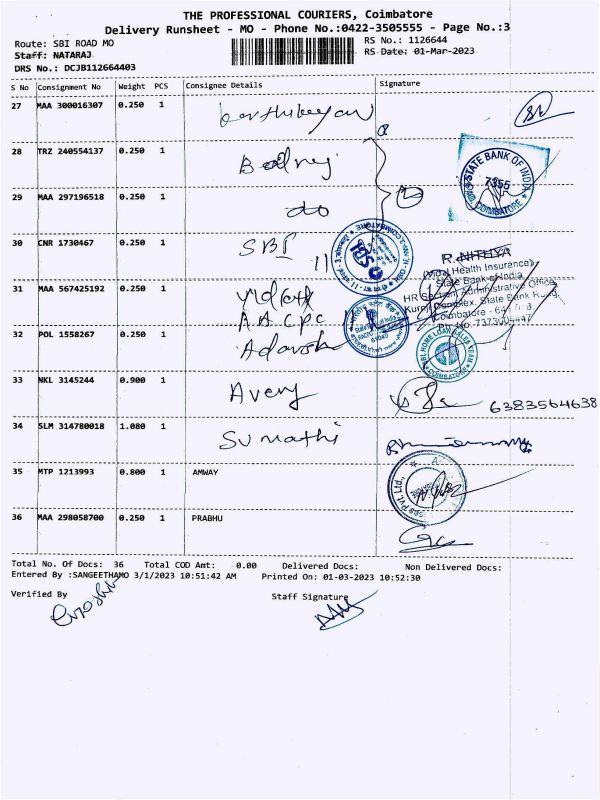 THE PROFESSIONAL COURIERS, Coimbatore
Delivery Runsheet - MO - Phone No.:0422-3505555 - Page No.:3
Route: SBI ROAD MO
RS No.: 1126644
Staff: NATARAJ
RS Date: 01-Mar-2023
DRS No.: DCJB112664403
S No Consignment No Weight PCS Consignee Details Signature
27 MAA 300016307 0.250 1
28 TRZ 240554137 0.250 1
STATE BANK OF INDIA
7355
COIMBATORE
29 MAA 297196518 0.250 1 do
30 CNR 1730467 0.250 1 SBI
R. NITHYA
(Vidal Health Insurance)
State Bank of India
31 MAA 567425192 0.250 1
HR Section, Administrative Office,
State Bank
A.A.CPC
Coimbatore
32 POL 1558267 0.250 1 Adarsh
33 NKL 3145244 0.900 1 Avery
6383564638
34 SLM 314780018 1.080 1 Sumathi
35 MTP 1213993 0.800 1 AMWAY
36 MAA 298058700 0.250 1 PRABHU
Total No. Of Docs: 36 Total COD Amt: 0.00 Delivered Docs: Non Delivered Docs:
Entered By :SANGEETHAMO 3/1/2023 10:51:42 AM Printed On: 01-03-2023 10:52:30
Verified By Staff Signature